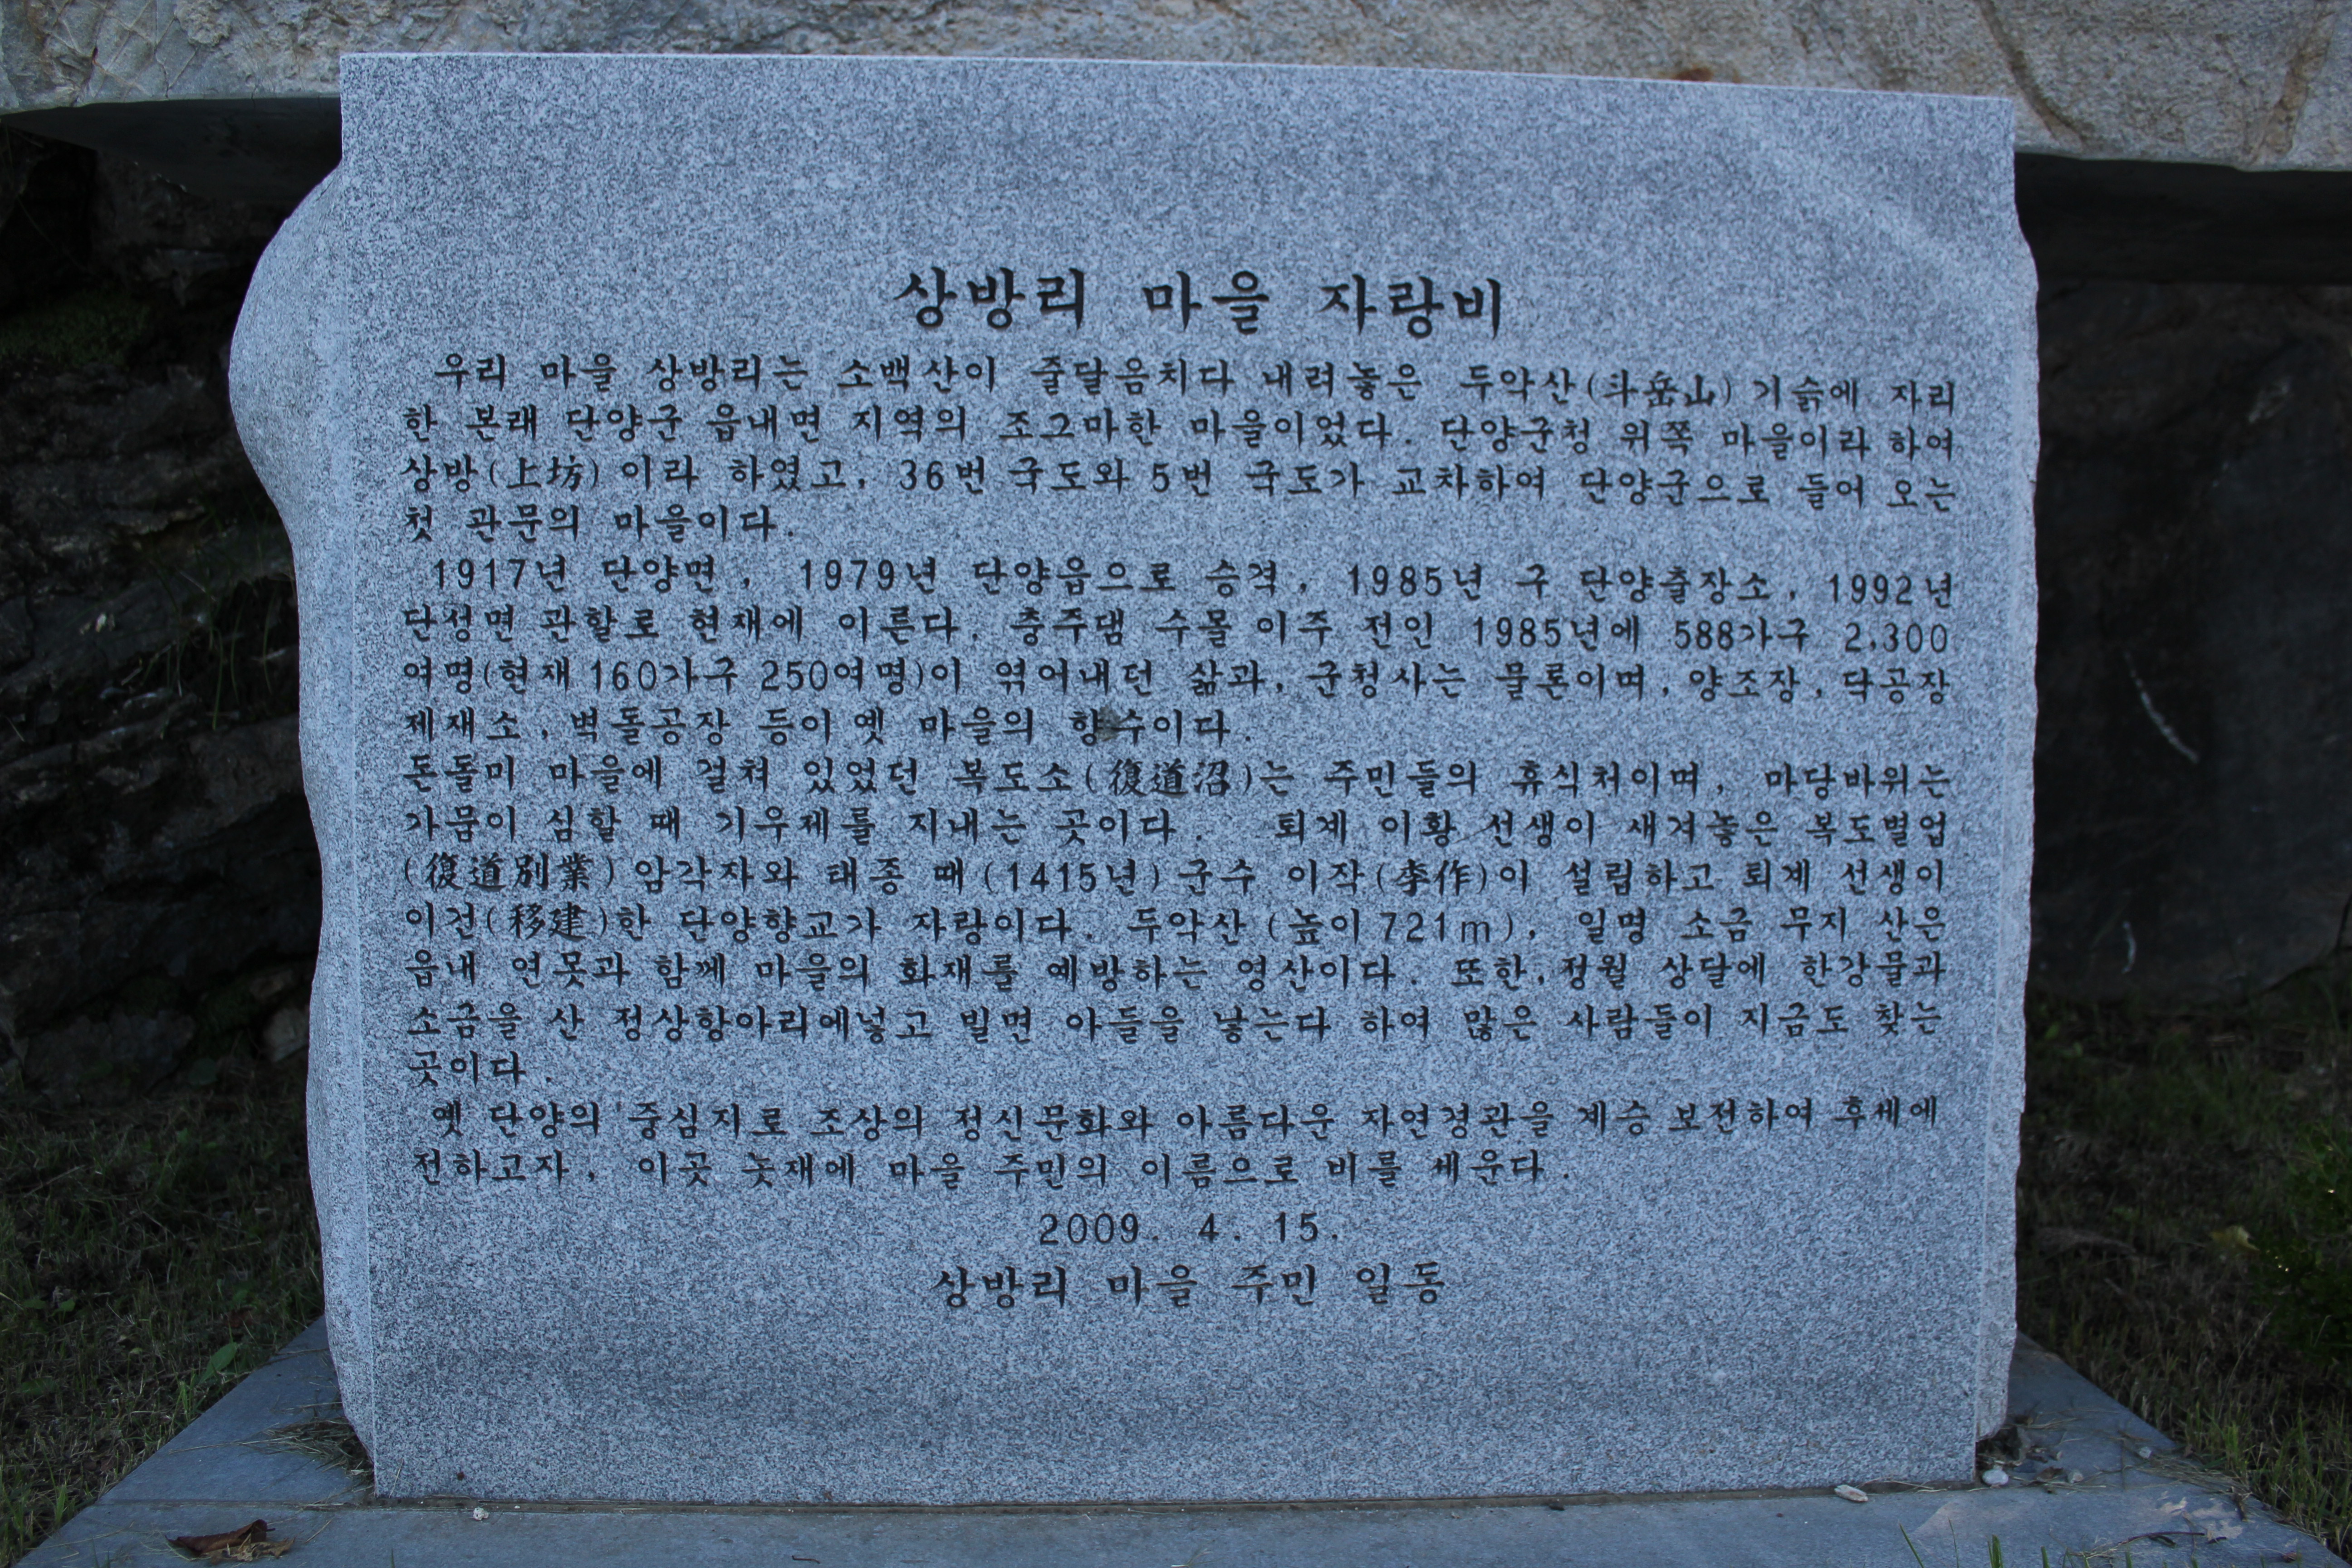 상방리 마을 자랑비
우리 마을 상방리는 소백산이 줄달음치다 내려놓은 두악산(斗岳山) 기슭에 자리
한 본래 단양군 읍내면 지역의 조그마한 마을이었다. 단양군청 위쪽 마을이라 하여
상방(上坊) 이라 하였고, 36번 국도와 5번 국도가 교차하여 단양군으로 들어 오는
첫 관문의 마을이다.
1917년 단양면, 1979년 단양읍으로 승격, 1985년 구 단양출장소, 1992년
단성면 관할로 현재에 이른다. 충주댐 수몰 이주 전인 1985년에 588가구 2,300
여명(현재 160가구 250여명)이 엮어내던 삶과, 군청사는 물론이며, 양조장, 닥공장
제재소, 벽돌공장 등이 옛 마을의 향수이다.
돈돌미 마을에 걸쳐 있었던 복도소(復道沼)는 주민들의 휴식처이며, 마당바위는
가뭄이 심할 때 기우제를 지내는 곳이다. 퇴계 이황 선생이 새겨놓은 복도별업
(復道別業) 암각자와 태종 때(1415년) 군수 이작(李作)이 설립하고 퇴계 선생이
이건(移建)한 단양향교가 자랑이다. 두악산 (높이 721m), 일명 소금 무지 산은
읍내 연못과 함께 마을의 화재를 예방하는 영산이다. 또한, 정월 상달에 한강물과
소금을 산 정상항아리에넣고 빌면 아들을 낳는다 하여 많은 사람들이 지금도 찾는
곳이다.
옛 단양의 중심지로 조상의 정신문화와 아름다운 자연경관을 계승 보전하여 후세에
전하고자, 이곳 놋재에 마을 주민의 이름으로 비를 세운다.
2009. 4. 15.
상방리 마을 주민 일동